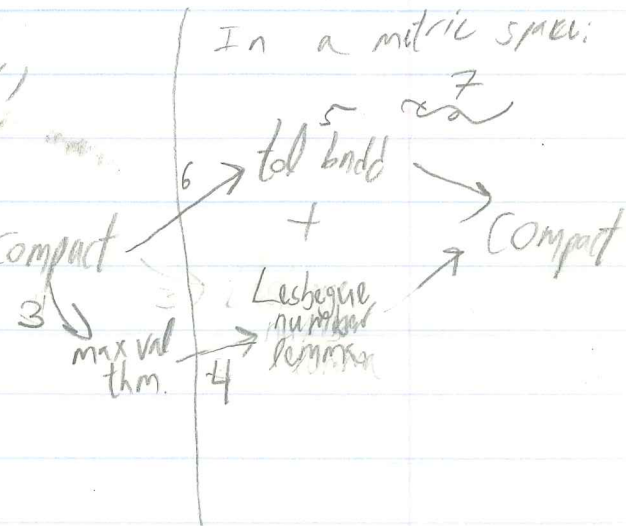 In a metric space:
7
5
tol bndd
6
+
compact
Compact
Lesbegue
number
lemma
3
max val
thm.
4